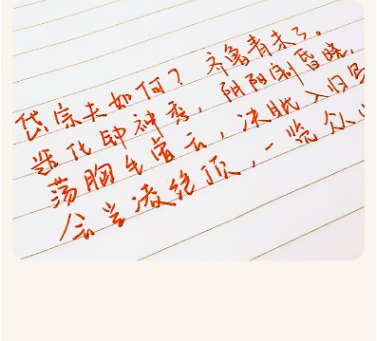 岱宗夫如何？齐鲁青未了。
造化钟神秀，阴阳割昏晓。
荡胸生曾云，决眦入归鸟
会当凌绝顶，一览众山